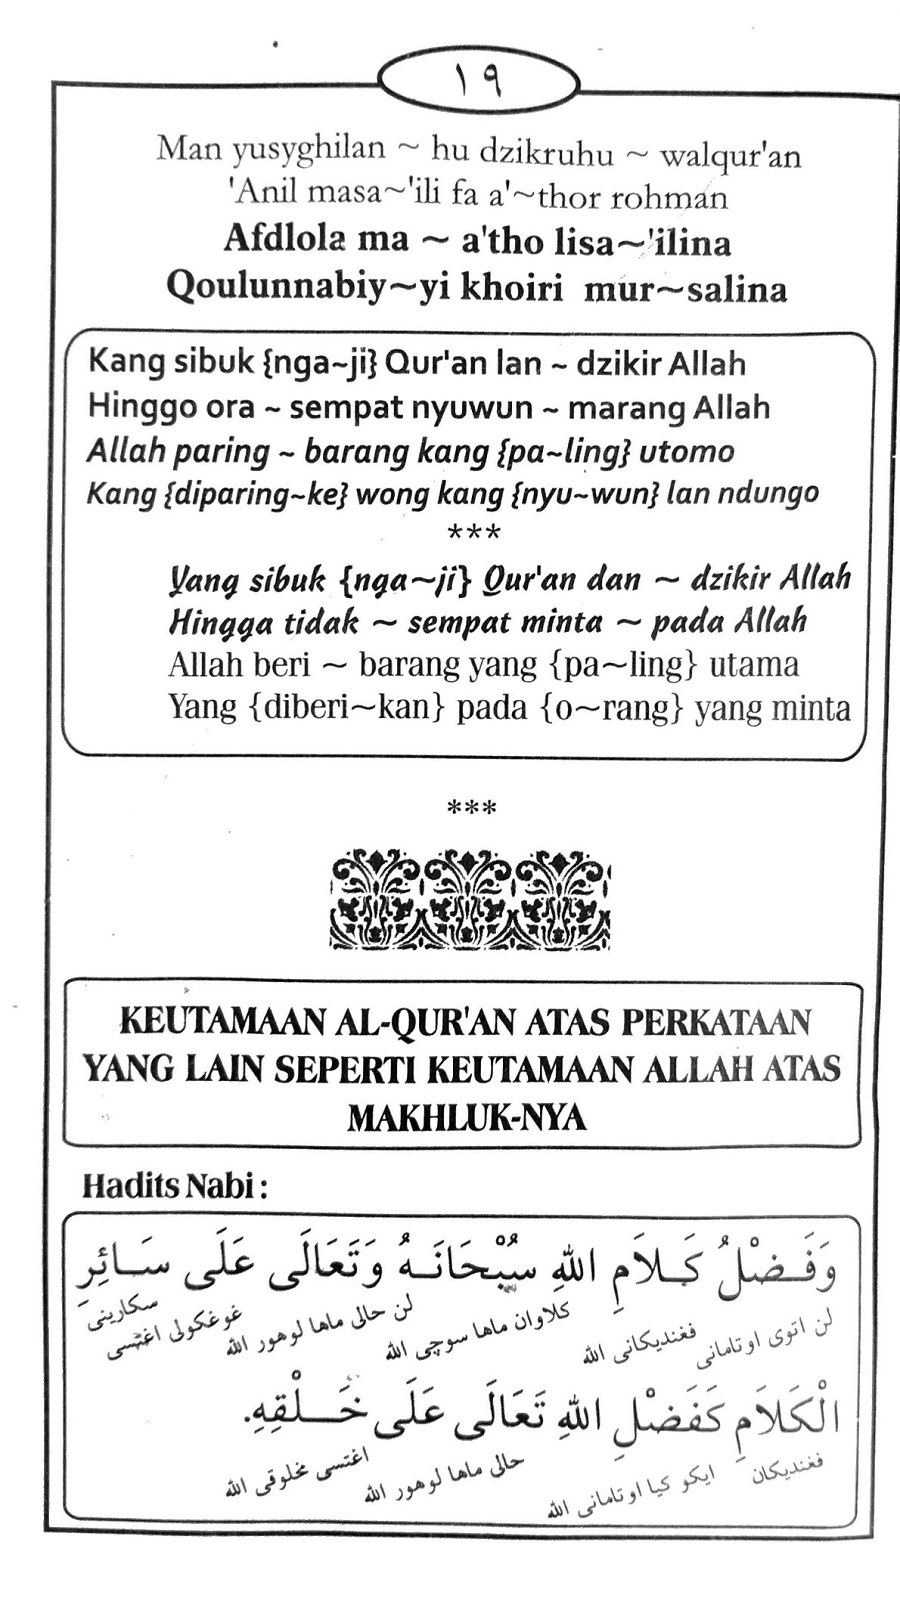 ١٩
Man yusyghilan ~ hu dzikruhu ~ walqur'an
'Anil masa~'ili fa a'~thor rohman
Afdlola ma ~ a'tho lisa~'ilina
Qoulunnabiy~yi khoiri mur~salina
Kang sibuk {nga~ji} Qur'an lan ~ dzikir Allah
Hinggo ora ~ sempat nyuwun ~ marang Allah
Allah paring ~ barang kang {pa~ling} utomo
Kang {diparing~ke} wong kang {nyu~wun} lan ndungo
***
Yang sibuk {nga~ji} Qur'an dan ~ dzikir Allah
Hingga tidak ~ sempat minta ~ pada Allah
Allah beri ~ barang yang {pa~ling} utama
Yang {diberi~kan} pada {o~rang} yang minta
***
KEUTAMAAN AL-QUR'AN ATAS PERKATAAN
YANG LAIN SEPERTI KEUTAMAAN ALLAH ATAS
MAKHLUK-NYA
Hadits Nabi :
وَفَضْلُ كَلاَمِ اللهِ سُبْحَانَهُ وَتَعَالَى عَلَى سَائِرِ
لن اتوي اوتاماني فڠنديكاني الله كلاوان ماها سوچي الله لن حالي ماها لوهور الله غوغكولي اغتسي سكاريني
الْكَلاَمِ كَفَضْلِ اللهِ تَعَالَى عَلَى خَلْقِهِ.
فغنديكان ايكو كيا اوتاماني الله حالي ماها لوهور الله اغتسي مخلوقي الله